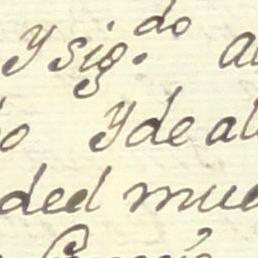 Y sig.do a
o Y de al
ded mue